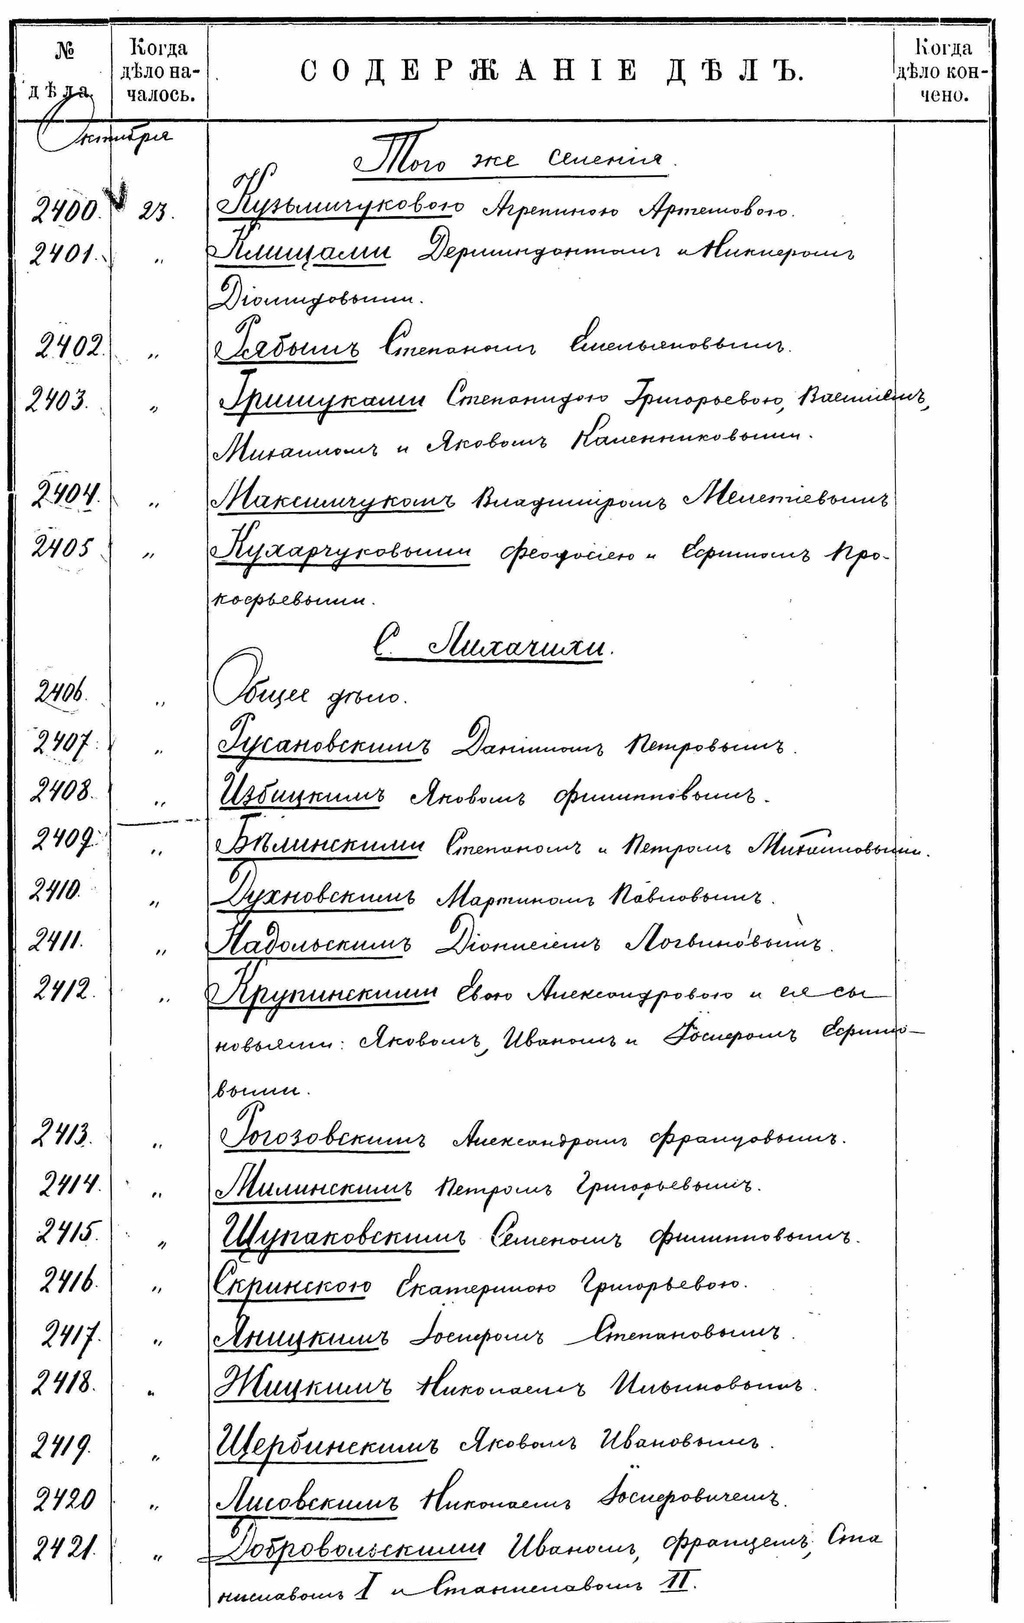 № дѣла
Когда дѣло началось.
СОДЕРЖАНІЕ ДѢЛЪ.
Когда дѣло кончено.
Октября
Того же селенія.
2400. 23. Кузьмичуковою Агрепиною Артемовою.
2401. „ Клищами Дермидонтомъ и Никифоромъ
Діомидовыми.
2402. „ Рябымъ Степаномъ Емельяновымъ.
2403. „ Грищуками Степанидою Григорьевою, Василіемъ,
Михаиломъ и Яковомъ Каленниковыми.
2404. „ Максимчукомъ Владиміромъ Мелетіевымъ
2405 „ Кухарчуковыми Феодосіею и Ефимомъ Про-
кофьевыми.
С. Лихачихи.
2406. „ Общее дѣло.
2407. „ Русановскимъ Даніиломъ Петровымъ.
2408. „ Избицкимъ Яковомъ Филипповымъ.
2409. „ Бѣлинскими Степаномъ и Петромъ Михайловыми.
2410. „ Духновскимъ Мартиномъ Павловымъ.
2411. „ Надольскимъ Діонисіемъ Логвиновымъ.
2412. „ Крупинскими Евою Александровою и ея сы
новьями: Яковомъ, Иваномъ и Іосифомъ Ефимо-
выми.
2413. „ Рогозовскимъ Александромъ Францовымъ.
2414. „ Милинскимъ Петромъ Григорьевымъ.
2415. „ Щупаковскимъ Семеномъ Филипповымъ.
2416. „ Скринскою Екатериною Григорьевою.
2417. „ Яницкимъ Іосифомъ Степановымъ.
2418. „ Жицкимъ Николаемъ Ильиновымъ.
2419. „ Щербинскимъ Яковомъ Ивановымъ.
2420 „ Лисовскимъ Николаемъ Іосифовичемъ.
2421. „ Добровольскими Иваномъ, Францемъ, Ста
ниславомъ I и Станиславомъ II.